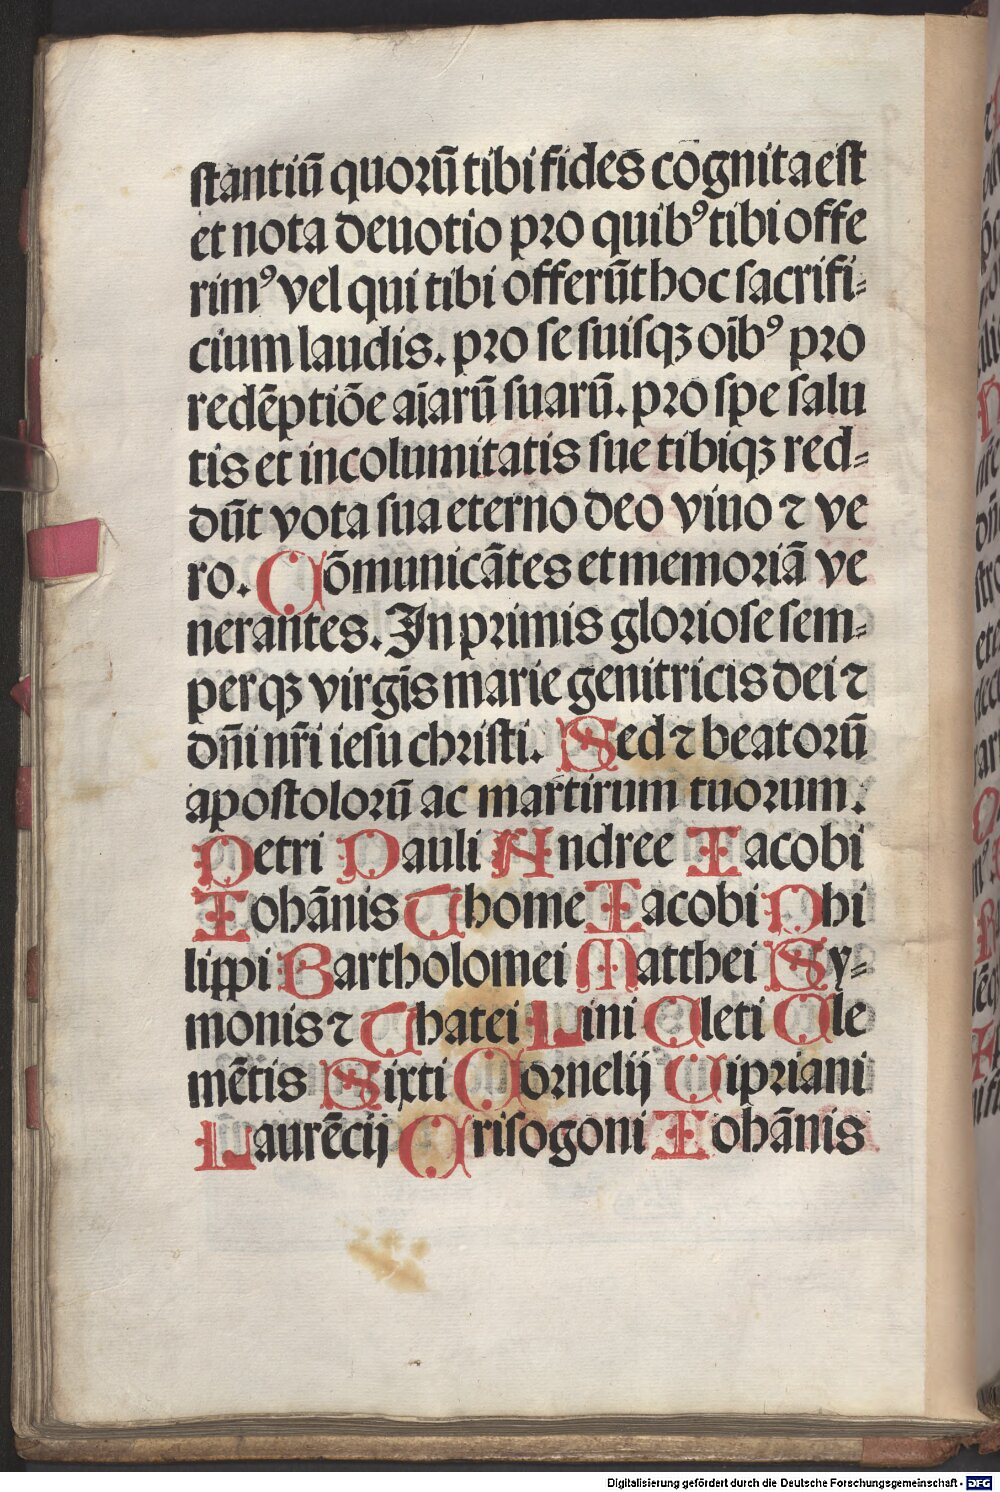 stantiū quorū tibi fides cognita est
et nota deuotio pro quibꝰ tibi offe
rimꝰ vel qui tibi offerūt hoc sacrifi⸗
cium laudis. pro se suisqꝫ oībꝰ pro
redēptiōe aīarū suarū. pro spe salu
tis et incolumitatis sue tibiqꝫ red⸗
dūt vota sua eterno deo viuo ⁊ ve
ro. Cōmunicātes et memoriā ve
nerantes. In primis gloriose sem⸗
perqꝫ virgīs marie genitricis dei ⁊
dn̄i nr̄i iesu christi. Sed ⁊ beatorū
apostolorū ac martirum tuorum.
Petri Pauli Andree Iacobi
Iohānis Thome Iacobi Phi
lippi Bartholomei Matthei Sy⸗
monis ⁊ Thatei Lini Cleti Cle
mētis Sixti Cornelij Cipriani
Laurēcij Crisogoni Iohānis
Digitalisierung gefördert durch die Deutsche Forschungsgemeinschaft - DFG